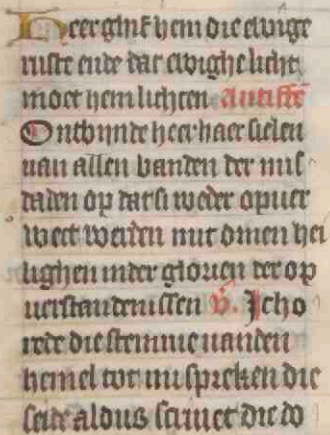 Heer ghif hem die ewige
ruste ende dat ewighe licht
moet hem lichten Antiffe
Ontbynde heer haer sielen
van allen banden der mis
daden op dat si weder opuer
wect werden mit dinen hei
lighen inder glorien der op
uerstandenissen V. Ic ho
rede die stemme vanden
hemel tot mi spreken die
seide aldus scriuet die do